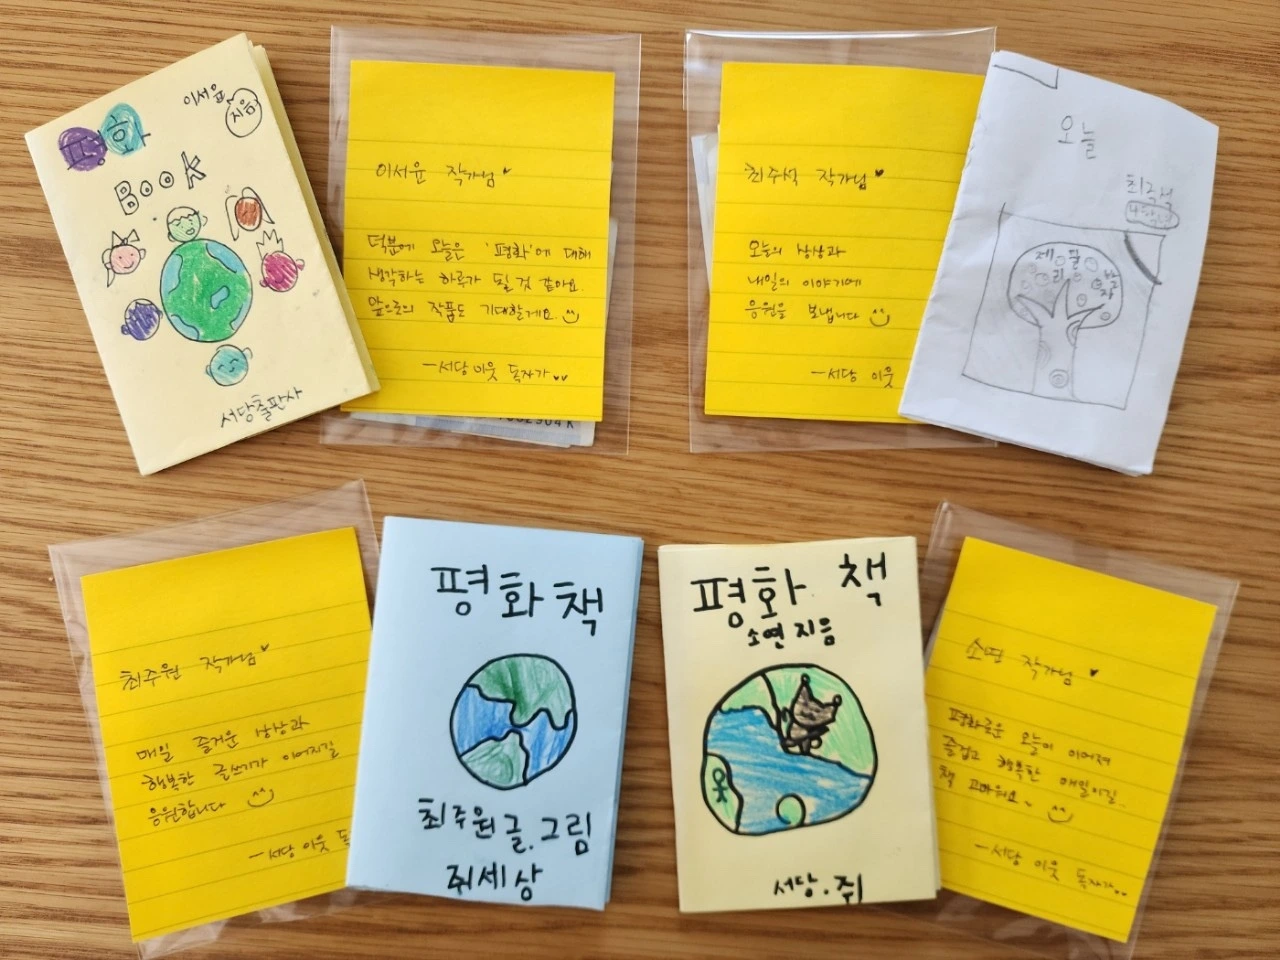 평화
이서윤
지음
BOOK
서당출판사
이서윤 작가님
덕분에 오늘은 '평화'에 대해
생각하는 하루가 될 것 같아요.
앞으로의 작품도 기대할게요
-서당 이웃 독자가
최주석 작가님
오늘의 상상과
내일의 이야기에
응원을 보냅니다
-서당 이웃
오늘
최주석
제
목
최주원 작가님
매일 즐거운 상상과
행복한 글쓰기가 이어지길
응원합니다
-서당 이웃 독
평화 책
최주원 글.그림
쥐세상
평화 책
소연 지음
서당.쥐
소연 작가님
평화로운 오늘이 이어져
즐겁고 행복한 매일이길.
책 고마워요~
-서당 이웃 독자가